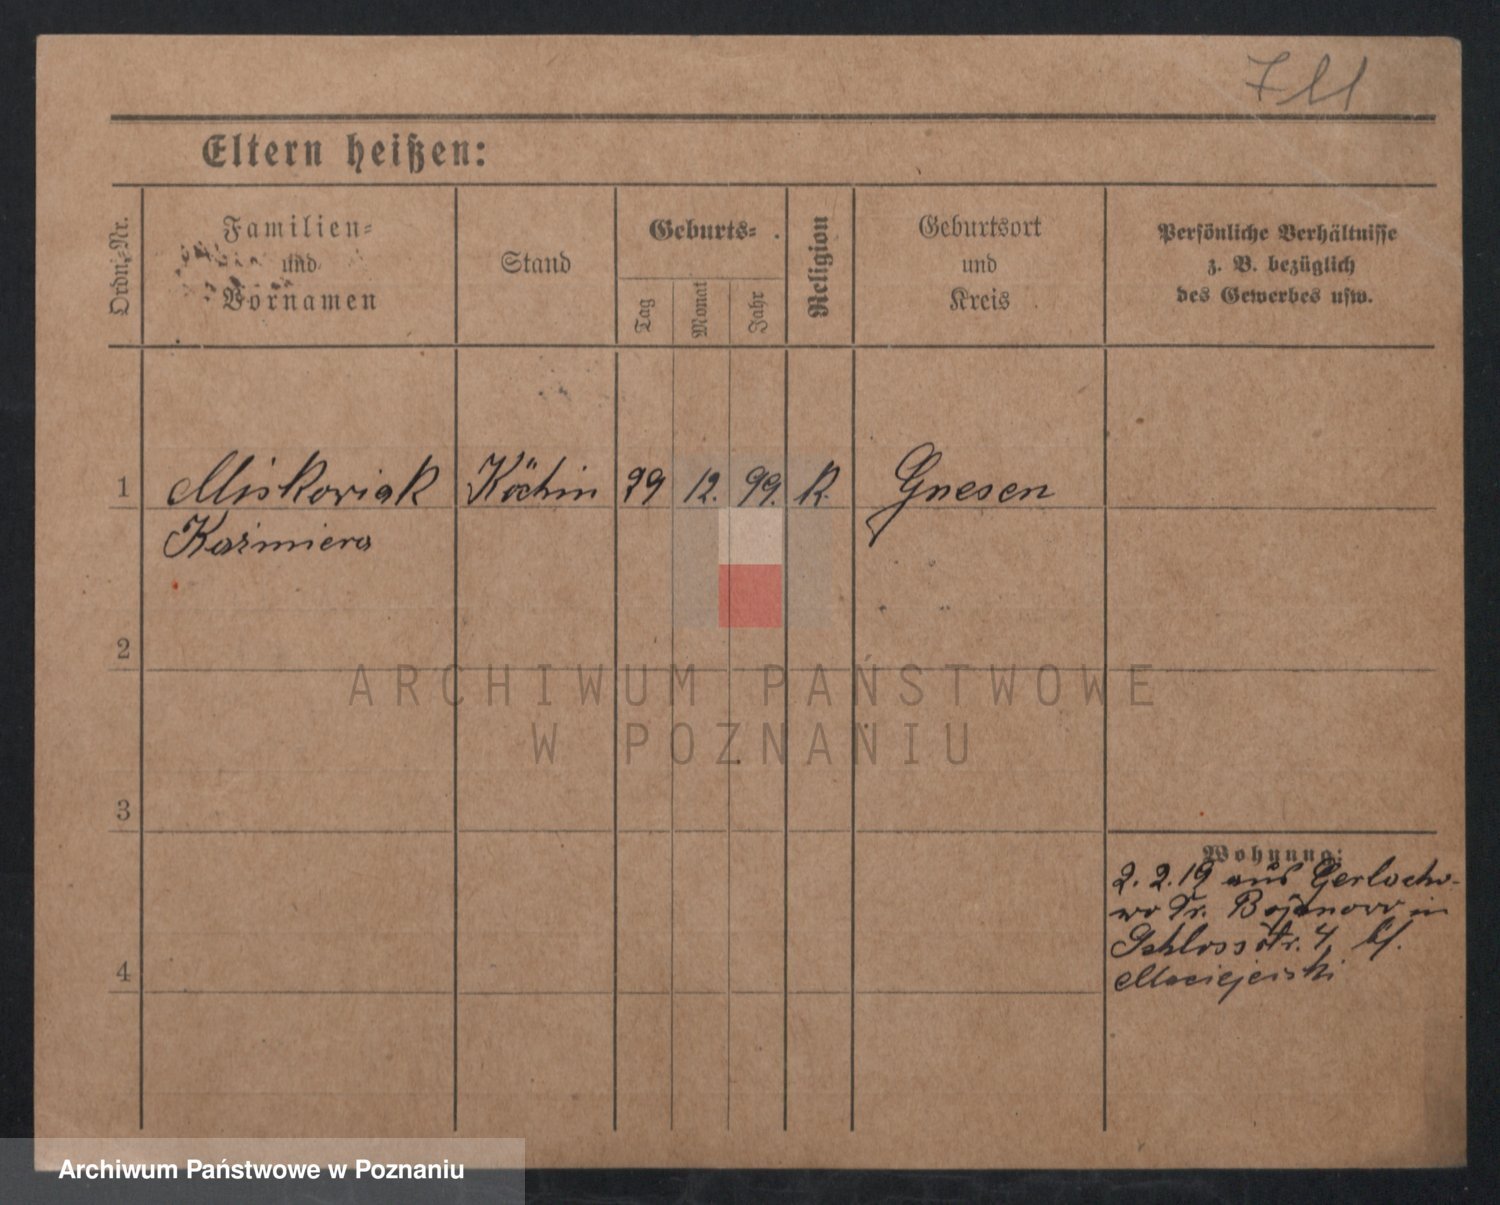 711
Eltern heißen:
Ordn.-Nr.
Familien-
und
Vornamen
Stand
Geburts-
Tag
Monat
Jahr
Religion
Geburtsort
und
Kreis
Persönliche Verhältnisse
z. B. bezüglich
des Gewerbes usw.
1 Miskowiak Köchin 29 12. 99. K. Gnesen
Kazimiera
2
ARCHIWUM PAŃSTWOWE
W POZNANIU
3
Wohnung:
2. 2. 19 aus Gerlacho-
wo Kr. Bojanowo in
Schlossstr. 4, bf.
4
Maciejewski
Archiwum Państwowe w Poznaniu